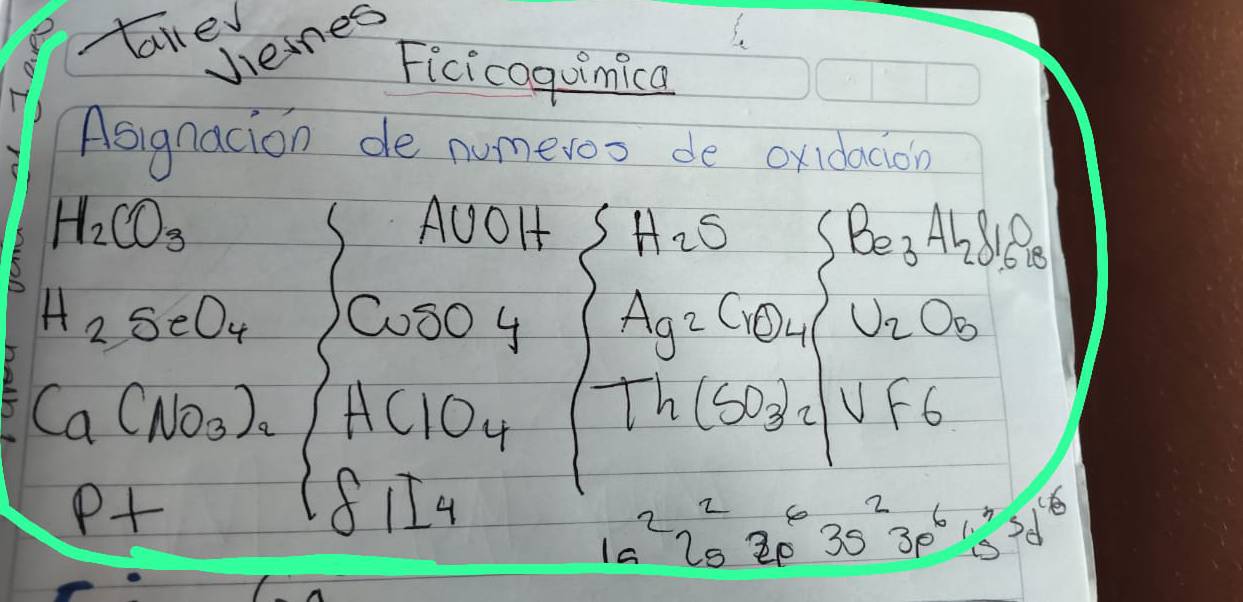 Taller
viernes
Ficicoquimica
Asignación de numeros de oxidación
H2CO3 AUOH H2S Be3Al2Si6O18
H2SeO4 CuSO4 Ag2CrO4 U2O5
Ca(NO3)2 HClO4 Th(SO3)2 VF6
Pt SiI4
1s² 2s² 2p⁶ 3s² 3p⁶